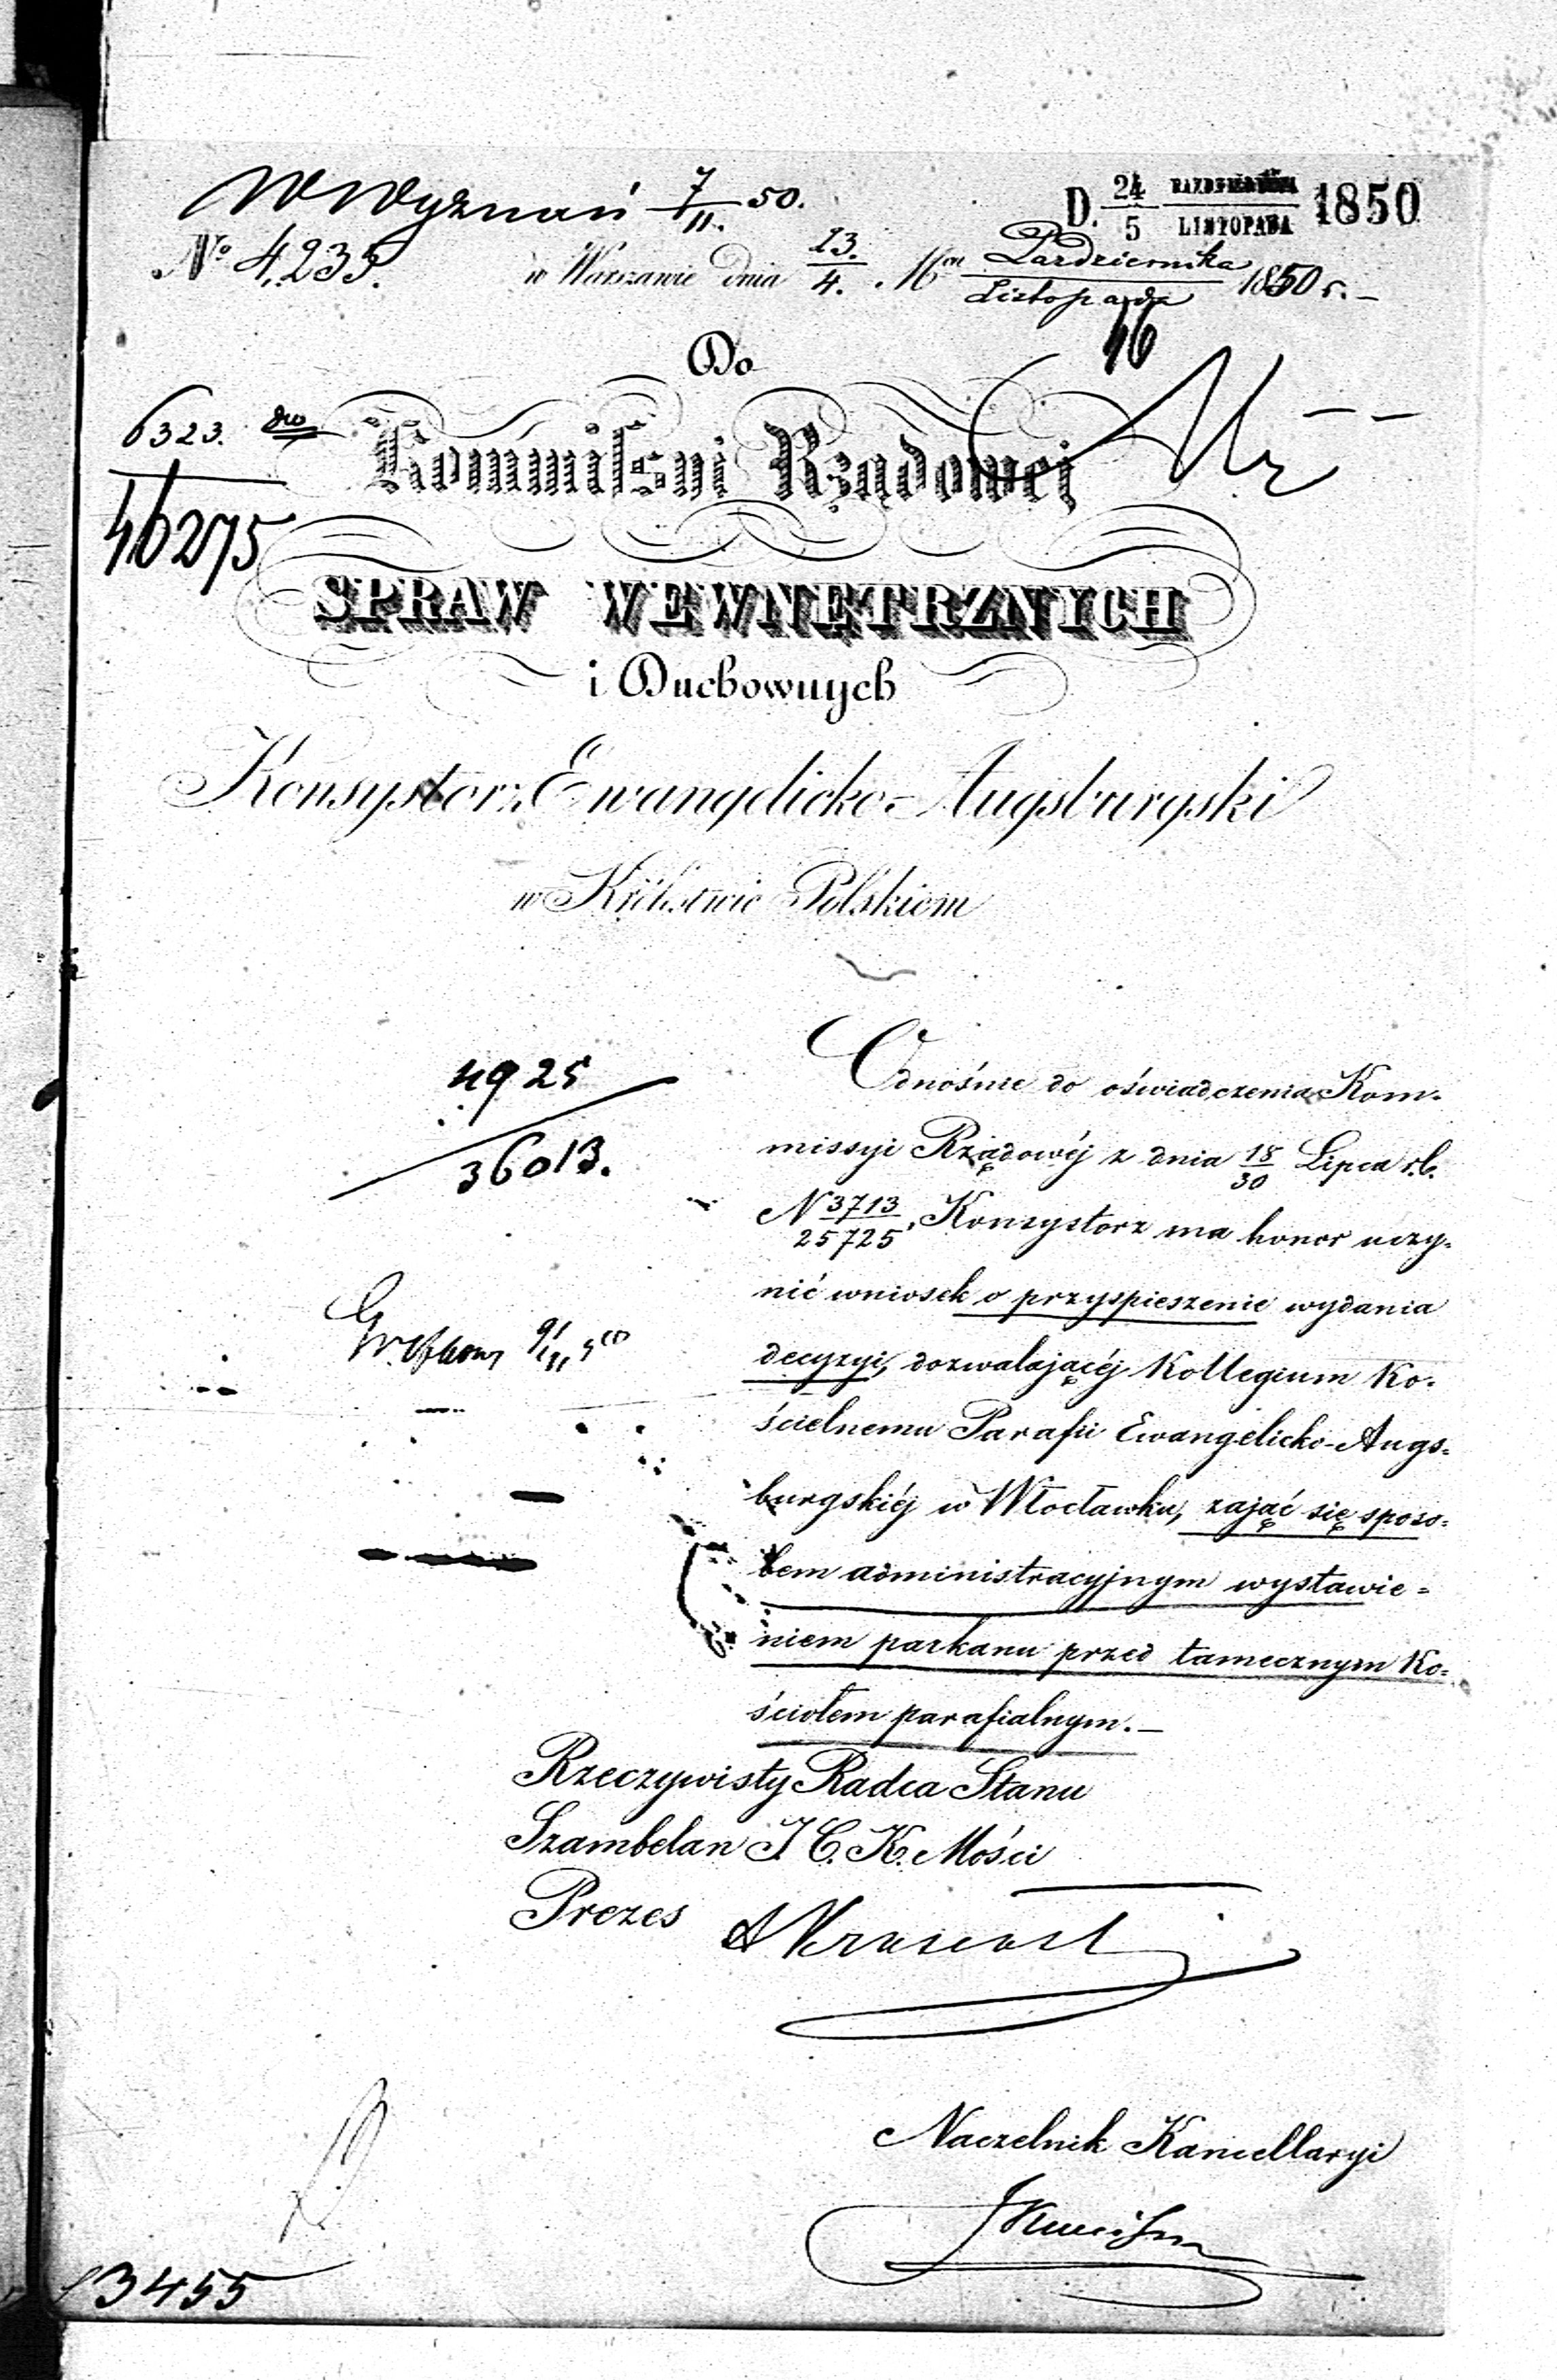 W Wyznań 7/11. 50.
D. 24/5 PAZDZIERNIKA/LISTOPADA 1850
No 4,235. w Warszawie dnia 23./4. Mca Pazdziernika/Listopada 1850 r.–
46
Do
6323.
46275
Kommissyi Rządowej
SPRAW WEWNĘTRZNYCH
i Duchownych
Konsystorz Ewangelicko-Augsburgski
w Królestwie Polskiem
4925
36013.
Odnośnie do oświadczenia Kom-
missyi Rządowéj z dnia 18/30 Lipca r.b.
N 3713/25725, Konsystorz ma honor uczy-
nić wniosek o przyspieszenie wydania
decyzyi, dozwalającéj Kollegium Ko-
ścielnemu Parafii Ewangelicko-Augs-
burgskiéj w Włocławku, zająć się sposo-
bem administracyjnym wystawie-
niem parkanu przed tamecznym Ko-
ściołem parafialnym.–
Rzeczywisty Radca Stanu
Szambelan J. C. K. Mości
Prezes
Naczelnik Kancellaryi
13455